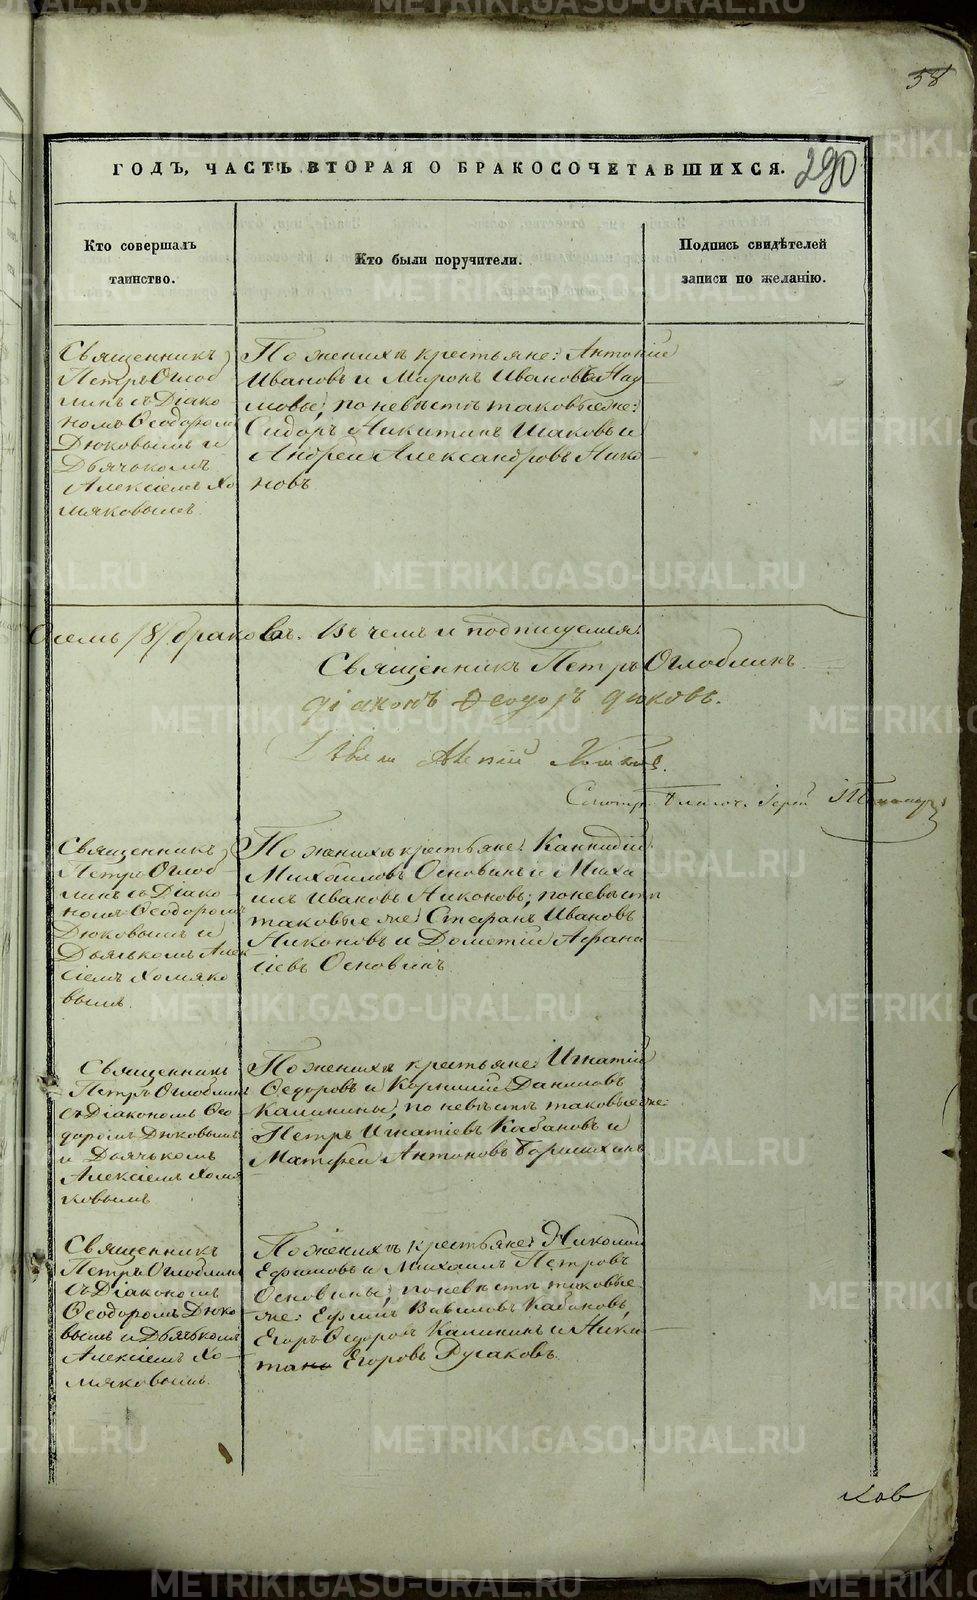 58
290
ГОДЪ, ЧАСТЬ ВТОРАЯ О БРАКОСОЧЕТАВШИХСЯ.
Кто совершалъ
таинство.
Кто были поручители.
Подпись свидѣтелей
записи по желанію.
Священникъ
Петръ Оглоб
линъ съ Діако
номъ Ѳеодоромъ
Дюковымъ и
Дьячькомъ
Алексіемъ Хо
мяковымъ.
По женихѣ крестьяне: Антоній
Ивановъ и Миронъ Ивановъ
мовы; по невѣстѣ таковые же:
Сидоръ Никитинъ Исаковъ и
Андрей Александровъ Нико
новъ
Осемь /8/ браковъ. Въ чемъ и подпишемся:
Священникъ Петръ Оглоблинъ.
Діаконъ Ѳеодоръ Дюковъ.
Священникъ
Петръ Оглоб
линъ съ Діако
номъ Ѳеодоромъ
Дюковымъ и
Дьячькомъ Алек
сіемъ Хомяко
вымъ.
По женихѣ крестьяне: Каннидій
Михайловъ Основинъ и Миха
илъ Ивановъ Никоновъ; по невѣстѣ
таковые же: Стефанъ Ивановъ
Никоновъ и Дометій Афана
сіевъ Основинъ.
Священникъ
Петръ Оглоблинъ
съ Діакономъ Ѳео
доромъ Дюковымъ
и Дьячькомъ
Алексіемъ Хомя
ковымъ
По женихѣ крестьяне: Игнатій
Ѳедоровъ и Корнилій Даниловъ
Калинины, по невѣстѣ таковые же:
Петръ Игнатіевъ Кабановъ и
Матфей Антоновъ
Священникъ
Петръ Оглоблинъ
съ Діакономъ
Ѳеодоромъ Дюко
вымъ и Дьячькомъ
Алексіемъ Хо
мяковымъ.
По женихѣ крестьяне: Николай
Ефимовъ и Михаилъ Петровъ
Основины; по невѣстѣ таковые
же: Ефимъ Вавиловъ Кабановъ,
Егоръ Ѳедоровъ Калининъ и Ники
та Егоровъ Русаковъ.
METRIKI.GASO-URAL.RU